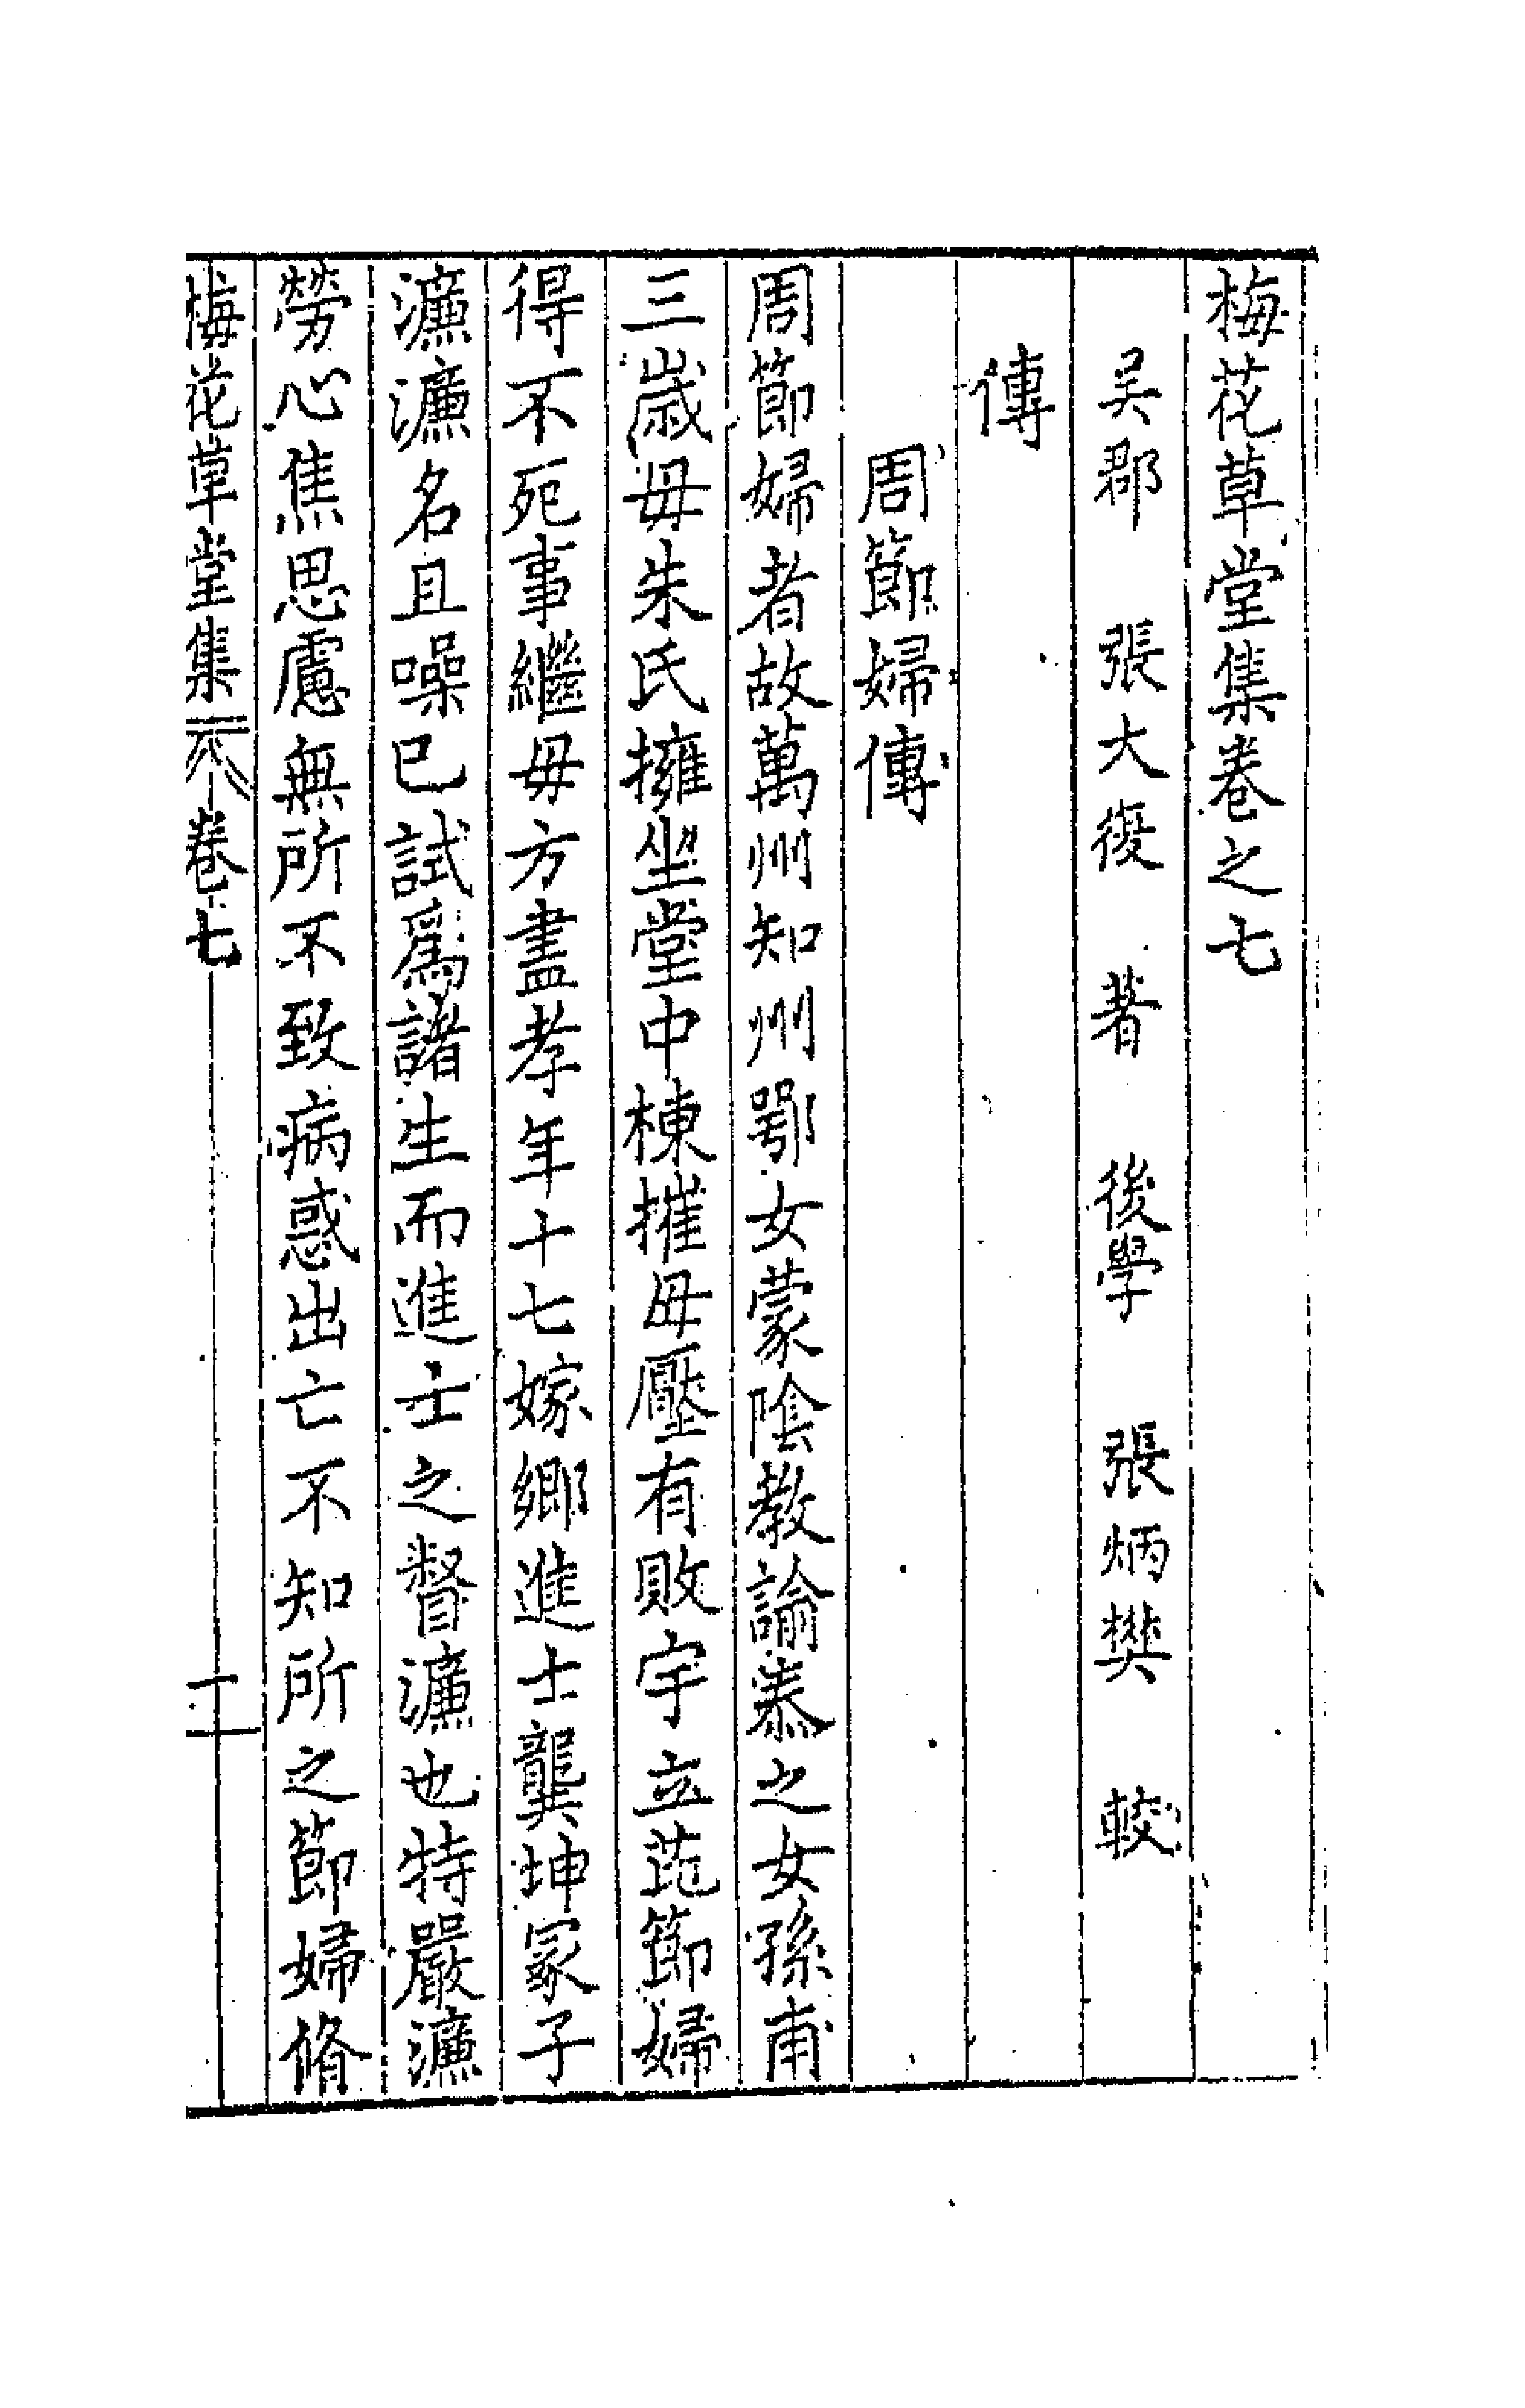 梅花草堂集卷之七
吳郡 張大復 著 後學 張炳樊 較
傳
周節婦傳
周節婦者故萬州知州鄂女蒙陰教諭㤗之女孫甫
三歲母朱氏擁坐堂中棟摧母壓有敗宇立茈節婦
得不死事繼母方盡孝年十七嫁鄉進士龔坤冢子
濂濂名且噪已試爲諸生而進士之督濂也特嚴濂
勞心焦思慮無所不致病惑出亡不知所之節婦脩
梅花草堂集 卷七 一